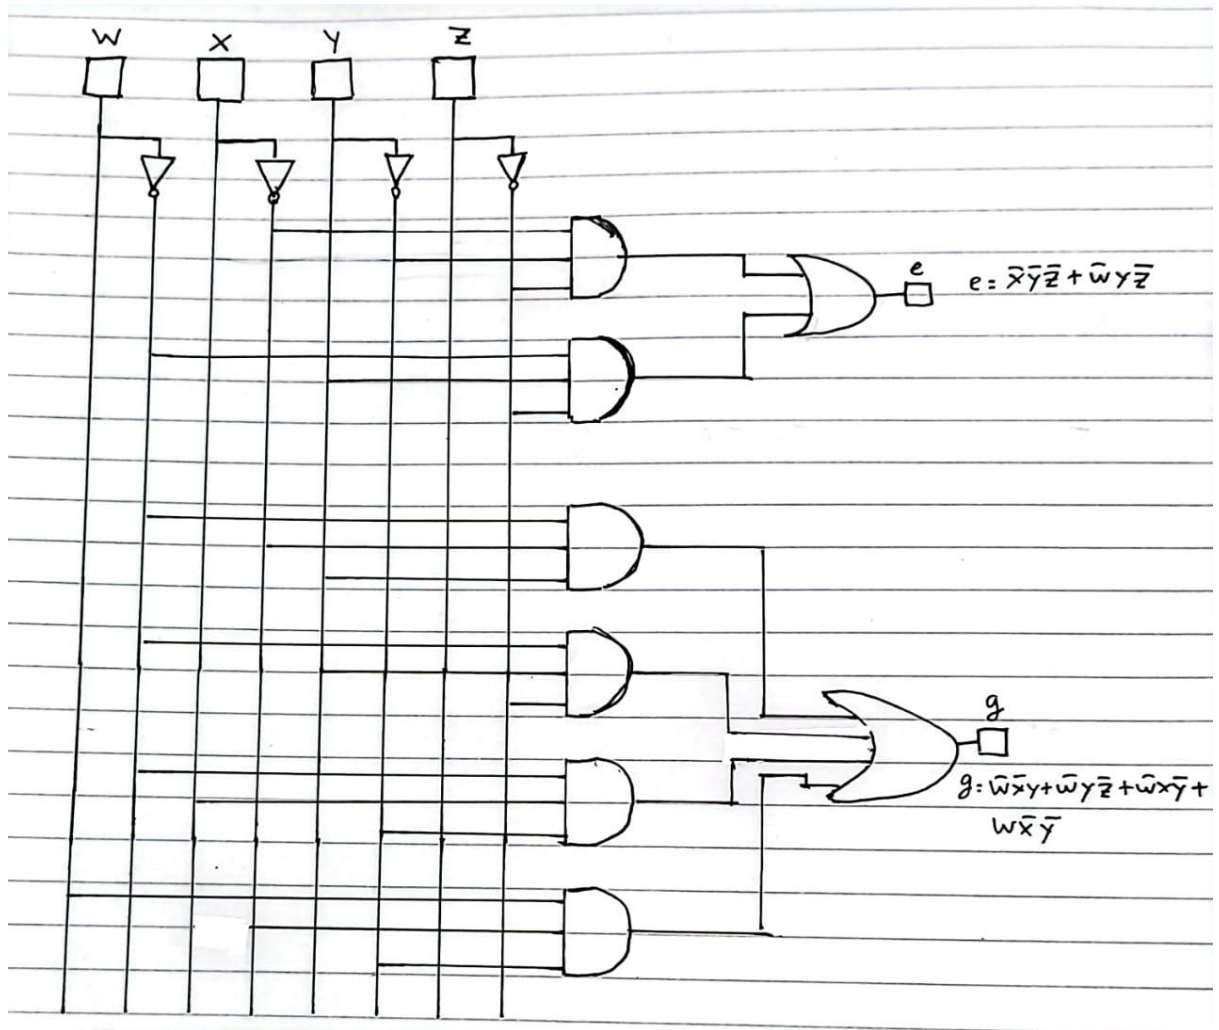 W X Y Z
e
e = x̄ȳz̄ + w̄yz̄
g
g = w̄x̄y + w̄yz̄ + w̄xȳ +
wx̄ȳ